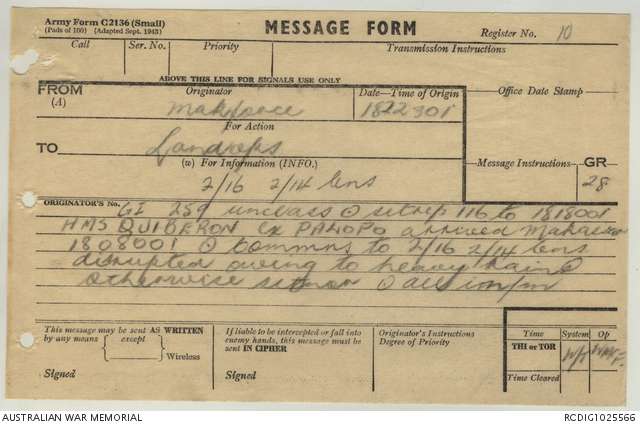 Army Form C2136 (Small)
(Pads of 100) (Adapted Sept. 1943)
MESSAGE FORM
Register No. 10
Call
Ser. No.
Priority
Transmission Instructions
ABOVE THIS LINE FOR SIGNALS USE ONLY
FROM
(A)
Originator
Date—Time of Origin
Office Date Stamp
Makforce
182230I
For Action
TO
Landops
(w) For Information (INFO.)
Message Instructions
GR
28
2/16 2/14 bns
ORIGINATOR'S No.
GI 259 unclass O sitrep 116 to 181800I
HMS QUIBERON ex PALOPO arrived Makassar
180800I O comms to 2/16 2/14 bns
disrupted owing to heavy rain O
otherwise sitnor O all infm
This message may be sent AS WRITTEN
by any means
except
Wireless
Signed
If liable to be intercepted or fall into
enemy hands, this message must be
sent IN CIPHER
Signed
Originator's Instructions
Degree of Priority
Time
System
Op
THI or TOR
Time Cleared
AUSTRALIAN WAR MEMORIAL
RCDIG1025566